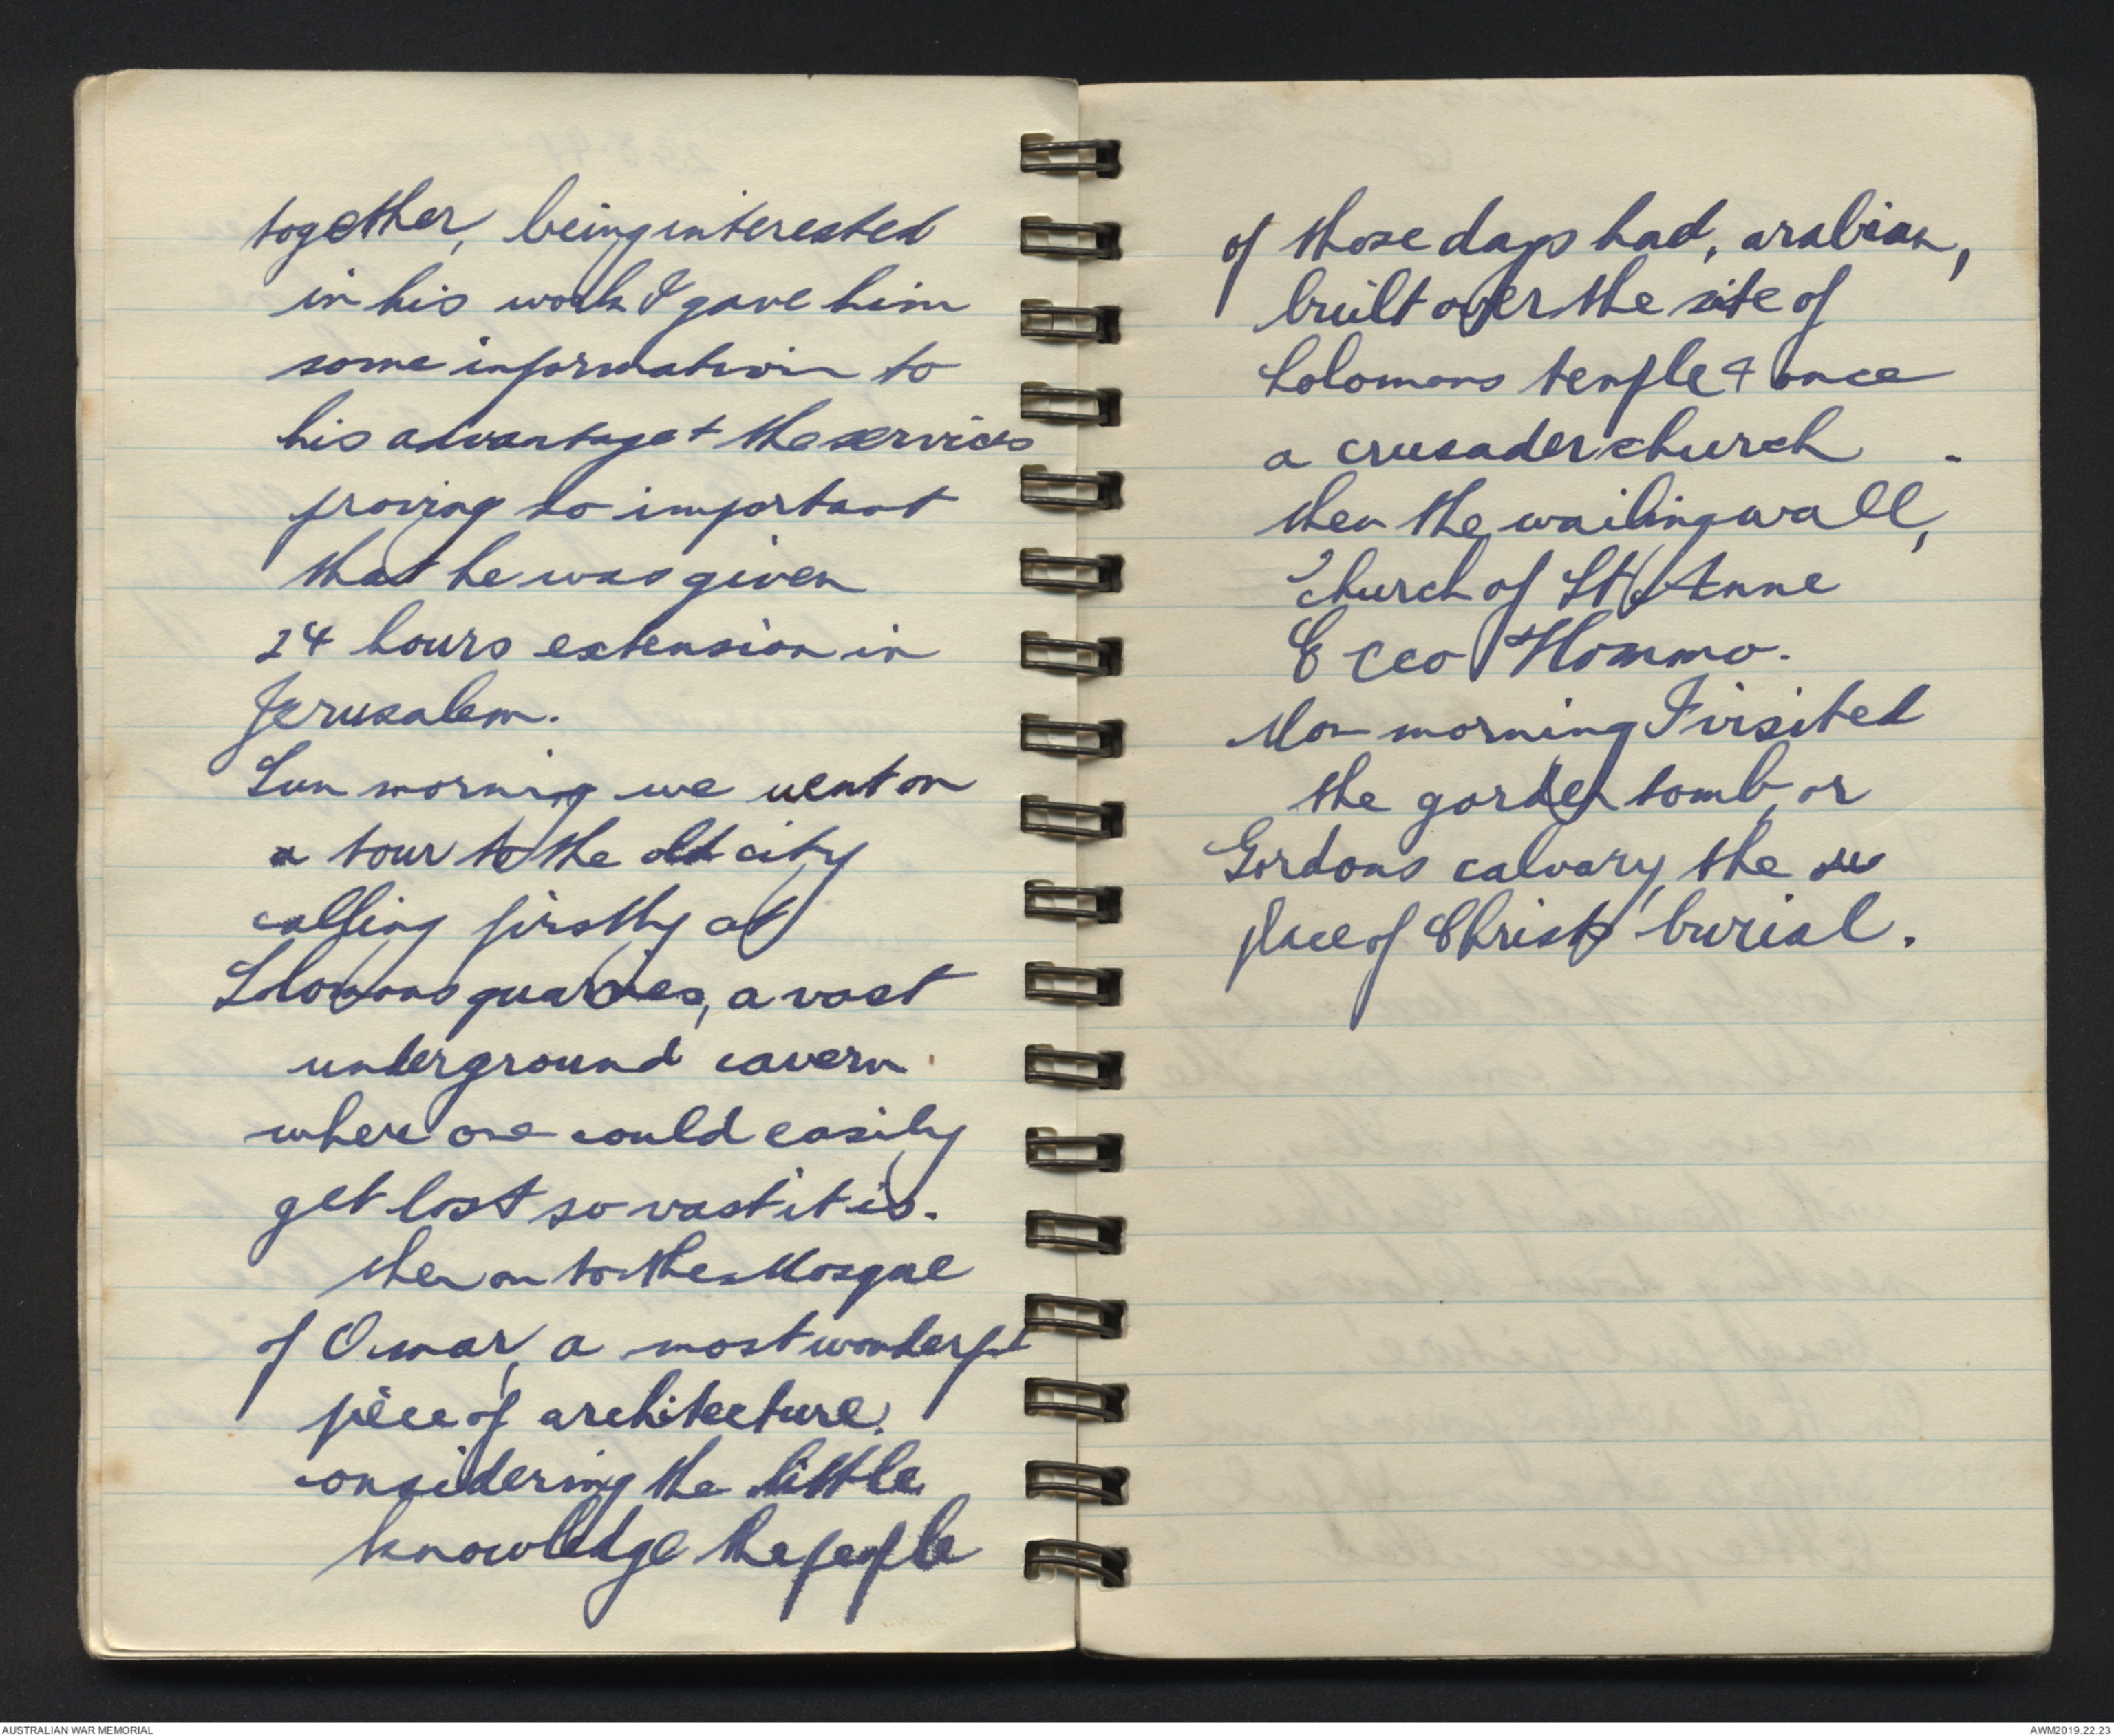 together, being interested
in his work I gave him
some information to
his advantage + the services
proving so important
that he was given
24 hours extension in
Jerusalem.
Sun morning we went on
a tour to the old city
calling firstly at
Solomons quarries, a vast
underground cavern
where one could easily
get lost so vast it is.
then on to the Mosque
of Omar, a most wonderful
piece of architecture,
considering the little
knowledge the people
of those days had, arabian,
built over the site of
Solomons temple & once
a crusader church
then the wailing wall,
Church of St Anne
Ecco Hommo.
Mon morning I visited
the garden tomb, or
Gordons calvary, the
place of Christs burial.
AUSTRALIAN WAR MEMORIAL
AWM2019.22.23